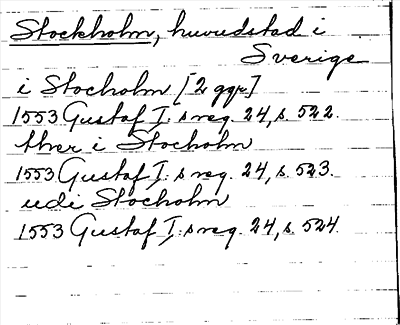 Stockholm, huvudstad i
Sverige
i Stocholm [2 ggr]
1553 Gustaf I:s reg. 24, s. 522.
ther i Stocholm
1553 Gustaf I:s reg. 24, s. 523.
udi Stocholm
1553 Gustaf I:s reg. 24, s. 524.